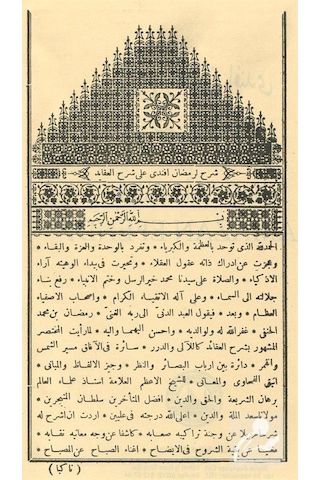 شرح لرمضان افندى على شرح العقائد
بسم الله الرحمن الرحيم
الحمدلله الذى توحد بالعظمة والكبرياء * وتفرد بالوحدة والعزة والبقاء *
وعجزت عن ادراك ذاته عقول العقلاء * وتحيرت فى بيداء الوهيته آراء
الاذكياء * والصلاة على سيدنا محمد خير الرسل وختم الانبياء * رفع بناء
جلالته الى السماء * وعلى آله الاتقياء الكرام * واصحاب الاصفياء
العظام * وبعد * فيقول العبد الدنى * الى ربه الغنى * رمضان بن محمد
الحنفى * غفرالله له ولوالديه * واحسن اليهما واليه * لما رأيت المختصر
المشهور بشرح العقائد كاللآلى والدرر * سائرة فى الآفاق مسير الشمس
والقمر * دائرة بين ارباب البصائر والنظر * وجيز الالفاظ والمبانى *
انيق الفحاوى والمعانى * للشيخ الاعظم العلامة استاذ علماء العالم
برهان الشريعة والحق والدين * افضل المتأخرين سلطان المتبحرين *
مولانا سعد الملة والدين * اعلى الله درجته فى عليين * اردت ان اشرح له
عن وجنة تراكيبه صعابه * كاشفا عن وجه معانيه نقابه *
الشروح فى الايضاح * اغناء الصباح عن المصباح *